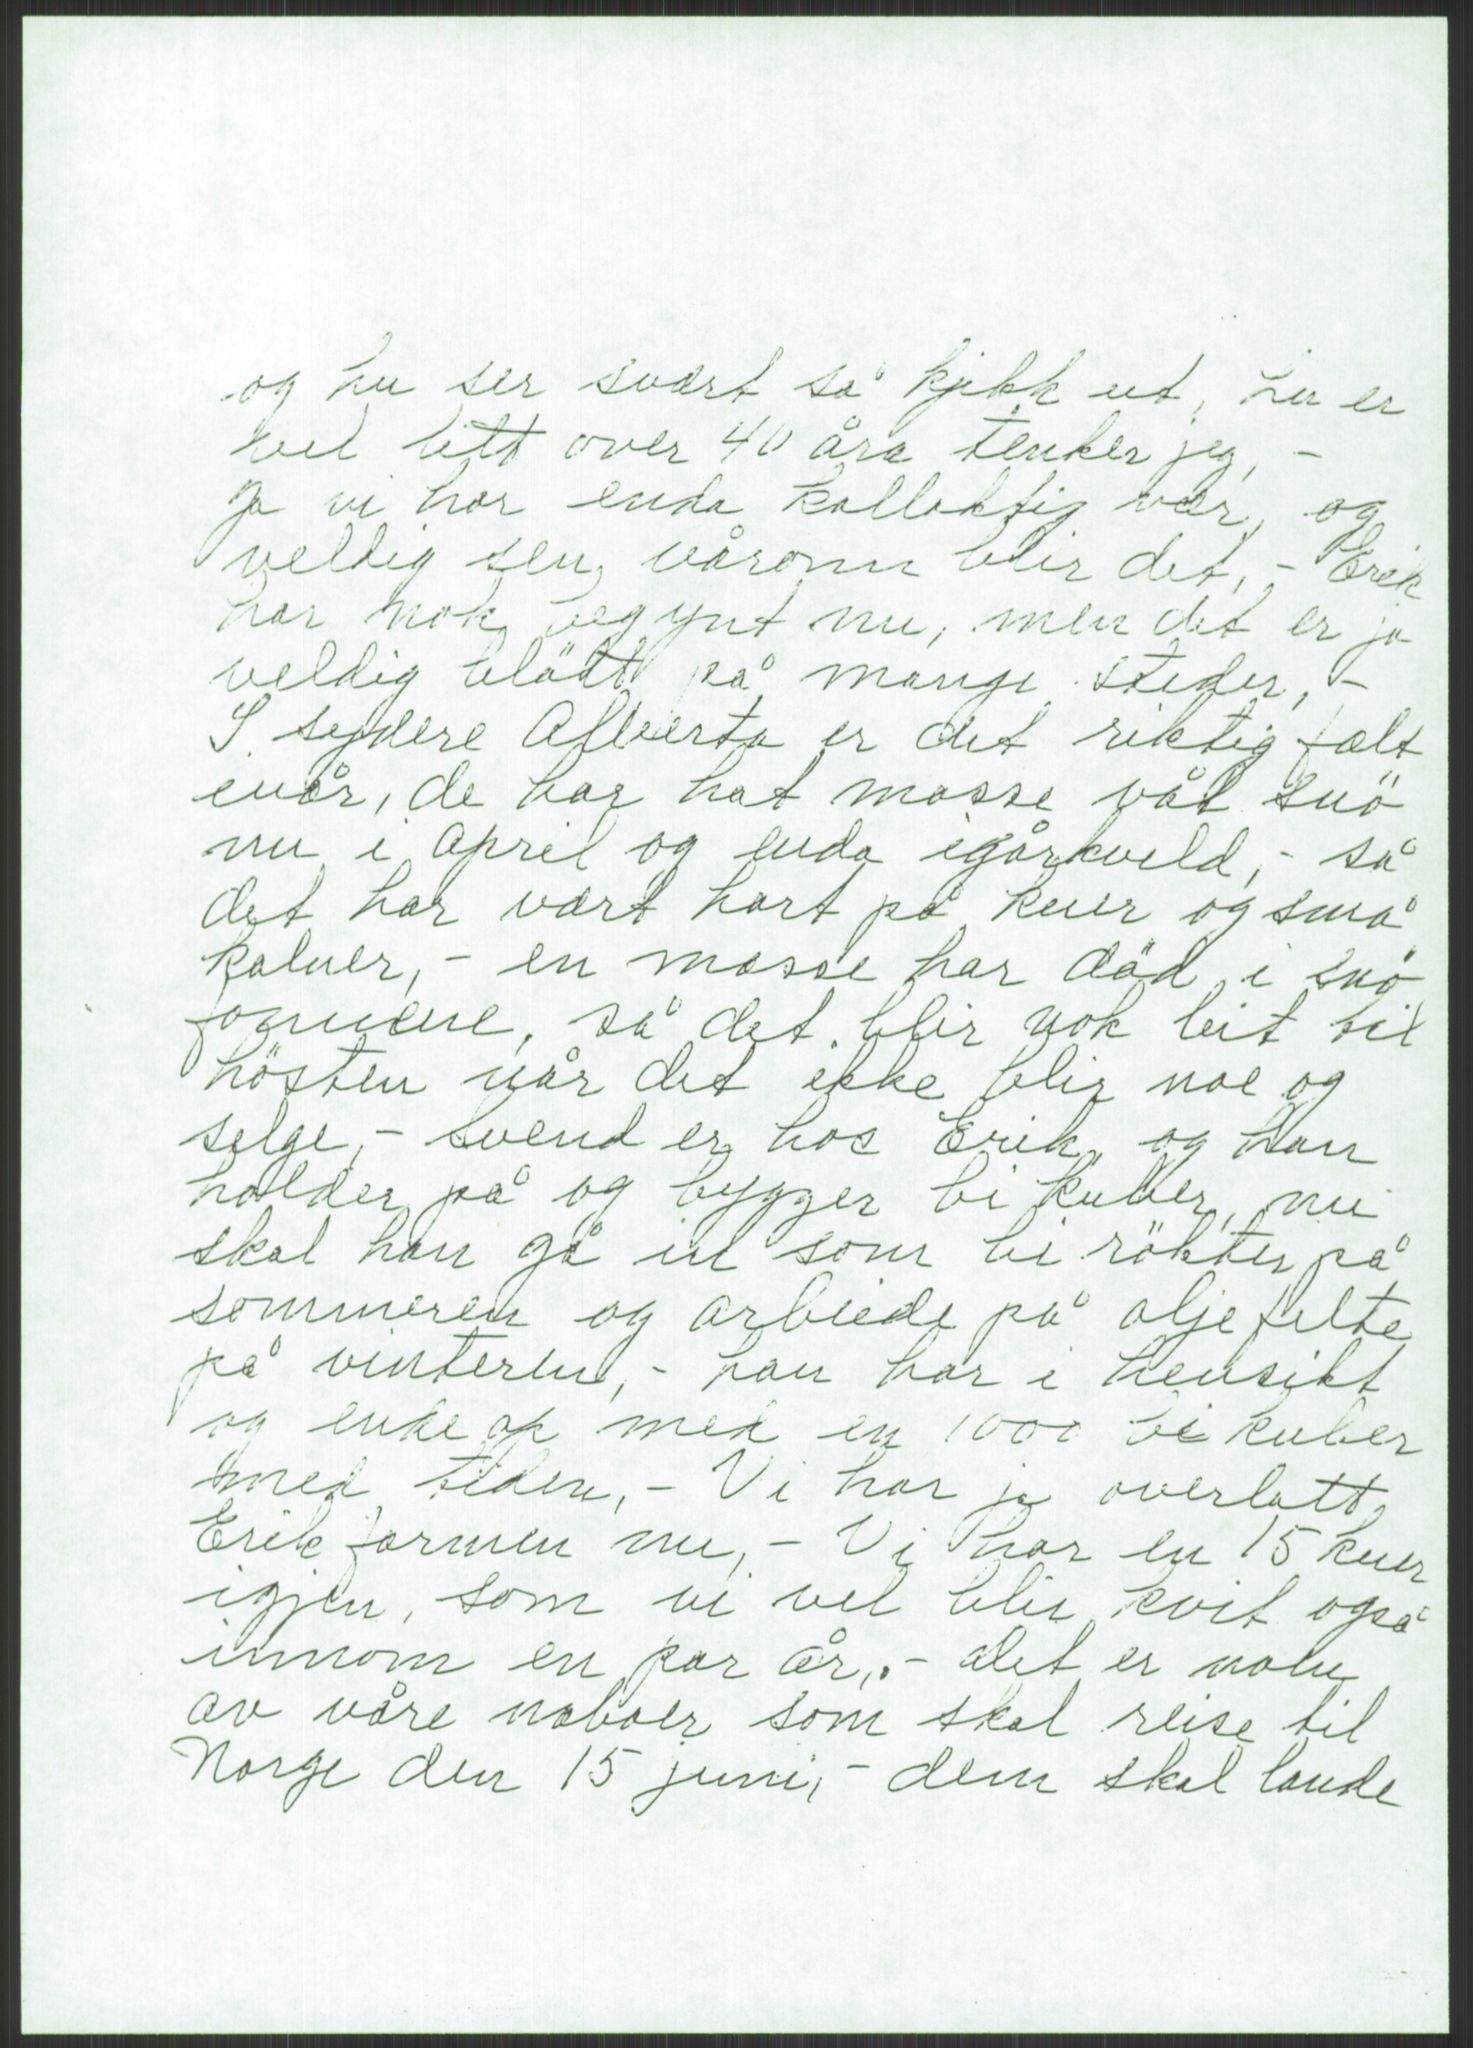 og hu ser svært så kjekk ut, hu er
vel litt over 40 åra tenker jeg, -
Ja vi har enda kallaktig vær, og
veldig sen våronn blir det, - Erik
har nok begynt nu, men det er ja
veldig blödt på mange steder, -
I sydere Alberta er det riktig fælt
ivår, de har hat masse våt snö
nu i April og enda igårkveld, - så
det har vært hart på kuer og små
kalver, - en masse har död i snö
fonnene, så det blir nok leit til
hösten når det ikke blir noe og
selge, - Svend er hos Erik og han
holder på og bygger bi kuber, nu
skal han gå in som bi rökter på
sommeren og arbeide på olje felte
på vinteren, - han har i hensikt
og ende op med en 1000 bi kuber
med tiden, - Vi har jo overlatt
Erik farmen nu, - Vi har en 15 kuer
igjen, som vi vel blir kvit også
innom en par år, - det er nohn
av våre naboer som skal reise til
Norge den 15 juni, - dem skal lande